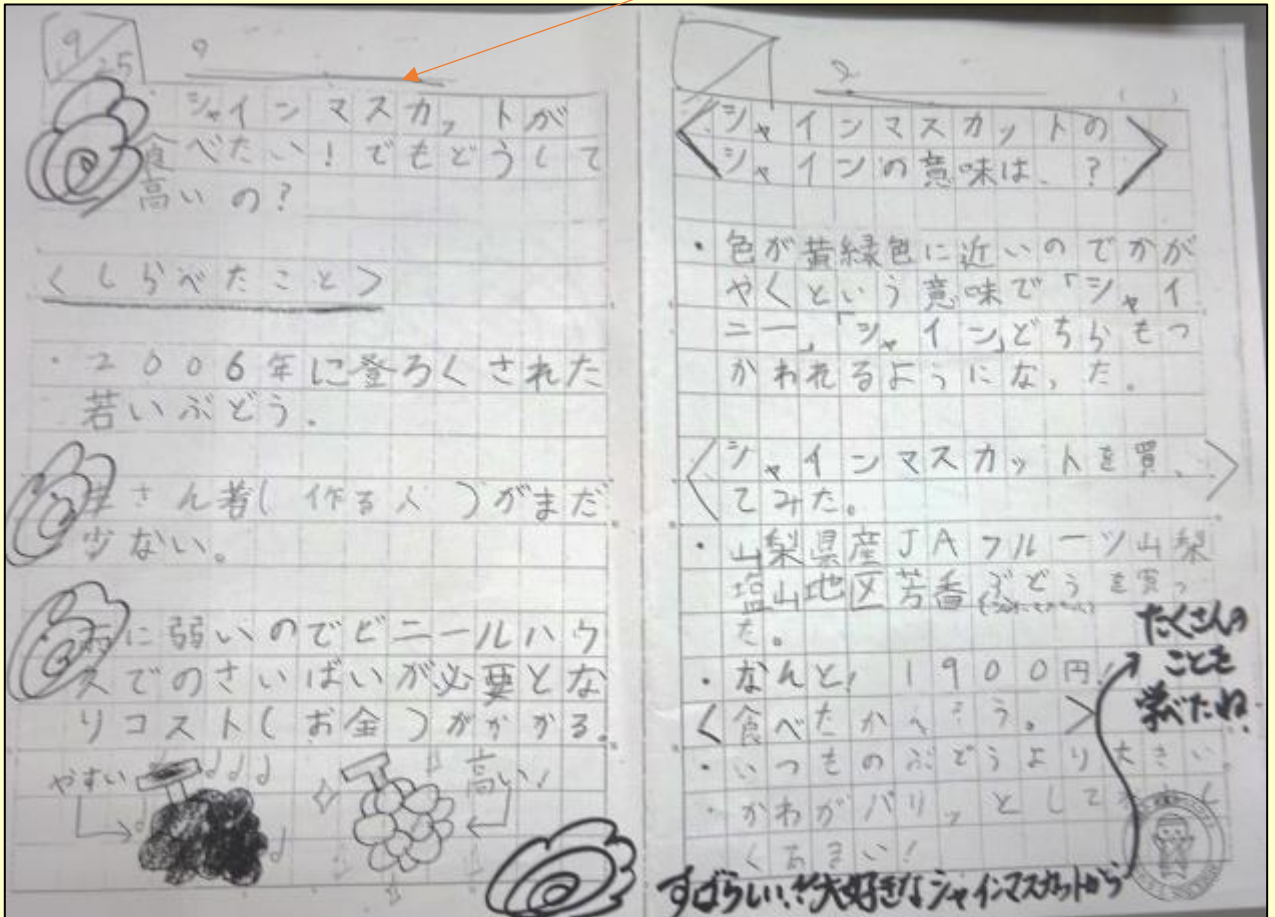 9/25
シャインマスカットが
食べたい！でもどうして
高いの？
＜しらべたこと＞
・2006年に登ろくされた
若いぶどう。
生さん者(作る人)がまだ
少ない。
雨に弱いのでビニールハウ
スでのさいばいが必要とな
りコスト(お金)がかかる。
やすい
高い！
＜シャインマスカットの
シャインの意味は、？＞
・色が黄緑色に近いのでかが
やくという意味で「シャイ
ニー」「シャイン」どちらもつ
かわれるようになった。
＜シャインマスカットを買っ
てみた。＞
・山梨県産JAフルーツ山梨
塩山地区芳香ぶどうを買っ
た。
・なんと！1900円！
＜食べたかんそう。＞
・いつものぶどうより大きい。
・かわがパリッとして
くあまい！
すばらしい！！大好きなシャインマスカットから
たくさんの
ことを
学べたね。